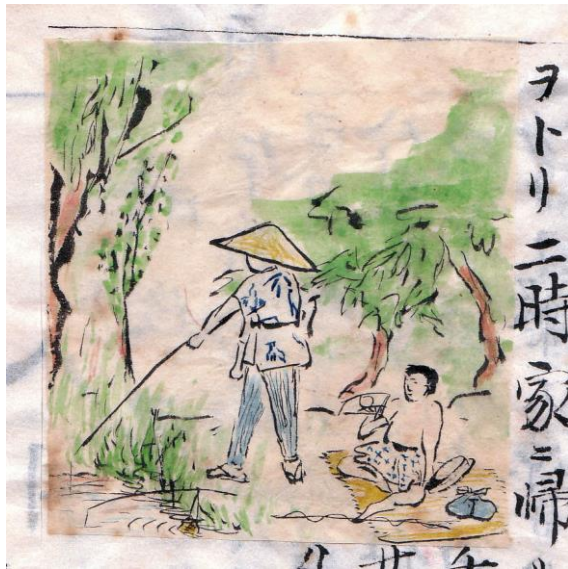 ヲトリ二時家ニ帰ル